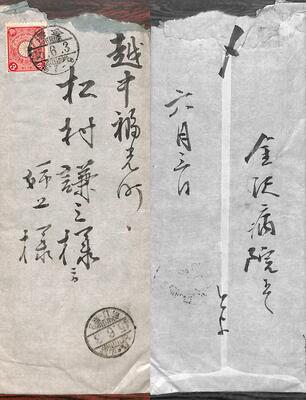 越中福光町、
松村謙三様方
姉上様
〆
金沢病院にて
とよ
六月三日